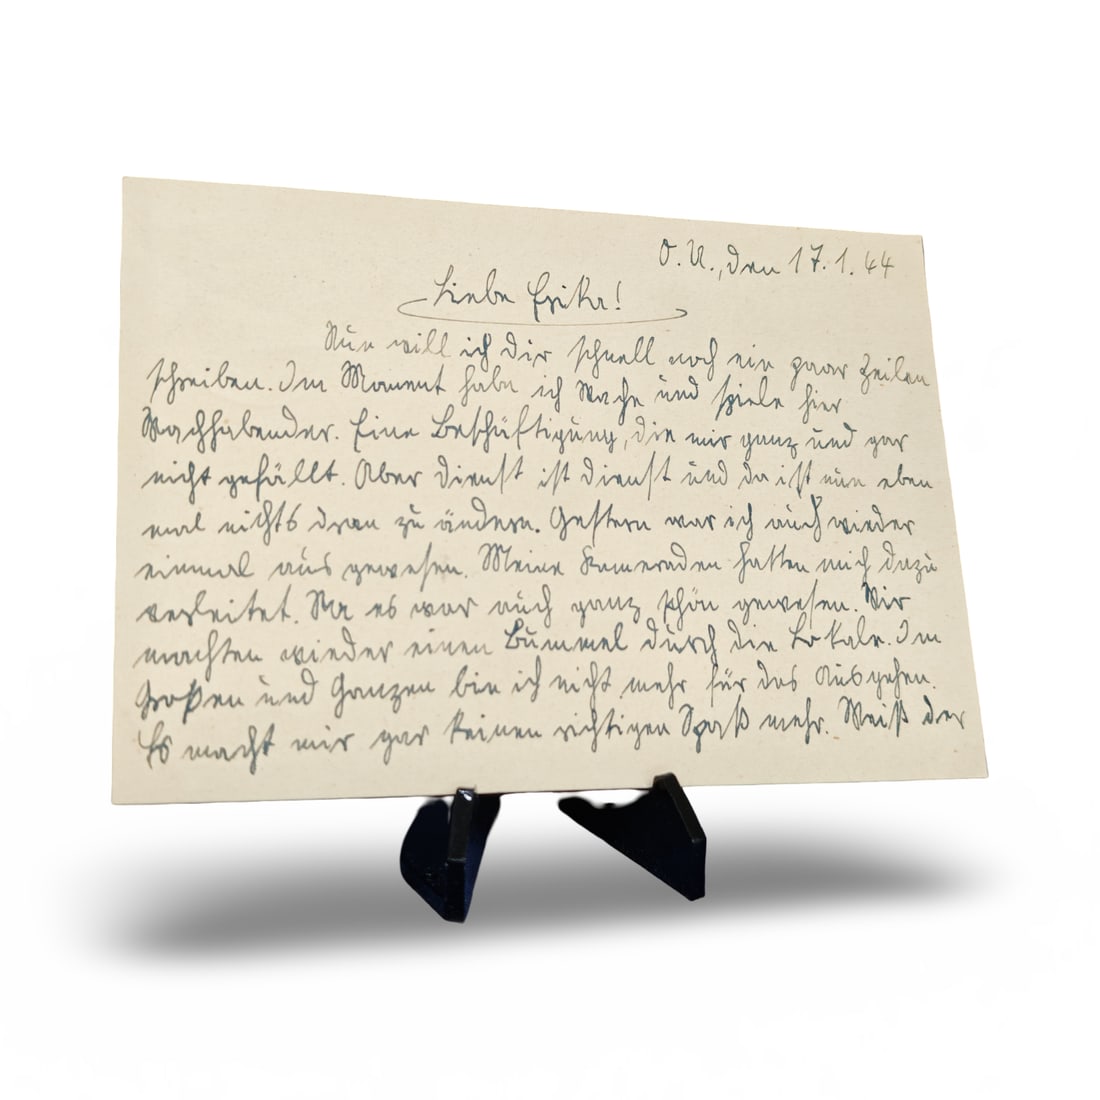 O.U., den 17.1.44
Liebe Erika!
Nun will ich Dir schnell noch ein paar Zeilen
schreiben. Im Moment habe ich Wache und spiele hier
Wachhabender. Eine Beschäftigung, die mir ganz und gar
nicht gefällt. Aber Dienst ist Dienst und da ist nun eben
mal nichts dran zu ändern. Gestern war ich auch wieder
einmal aus gewesen. Meine Kameraden hatten mich dazu
verleitet. Na es war auch ganz schön gewesen. Wir
machten wieder einen Bummel durch die Lokale. Im
Großen und Ganzen bin ich nicht mehr für das Ausgehen.
Es macht mir gar keinen richtigen Spaß mehr. Weiß der